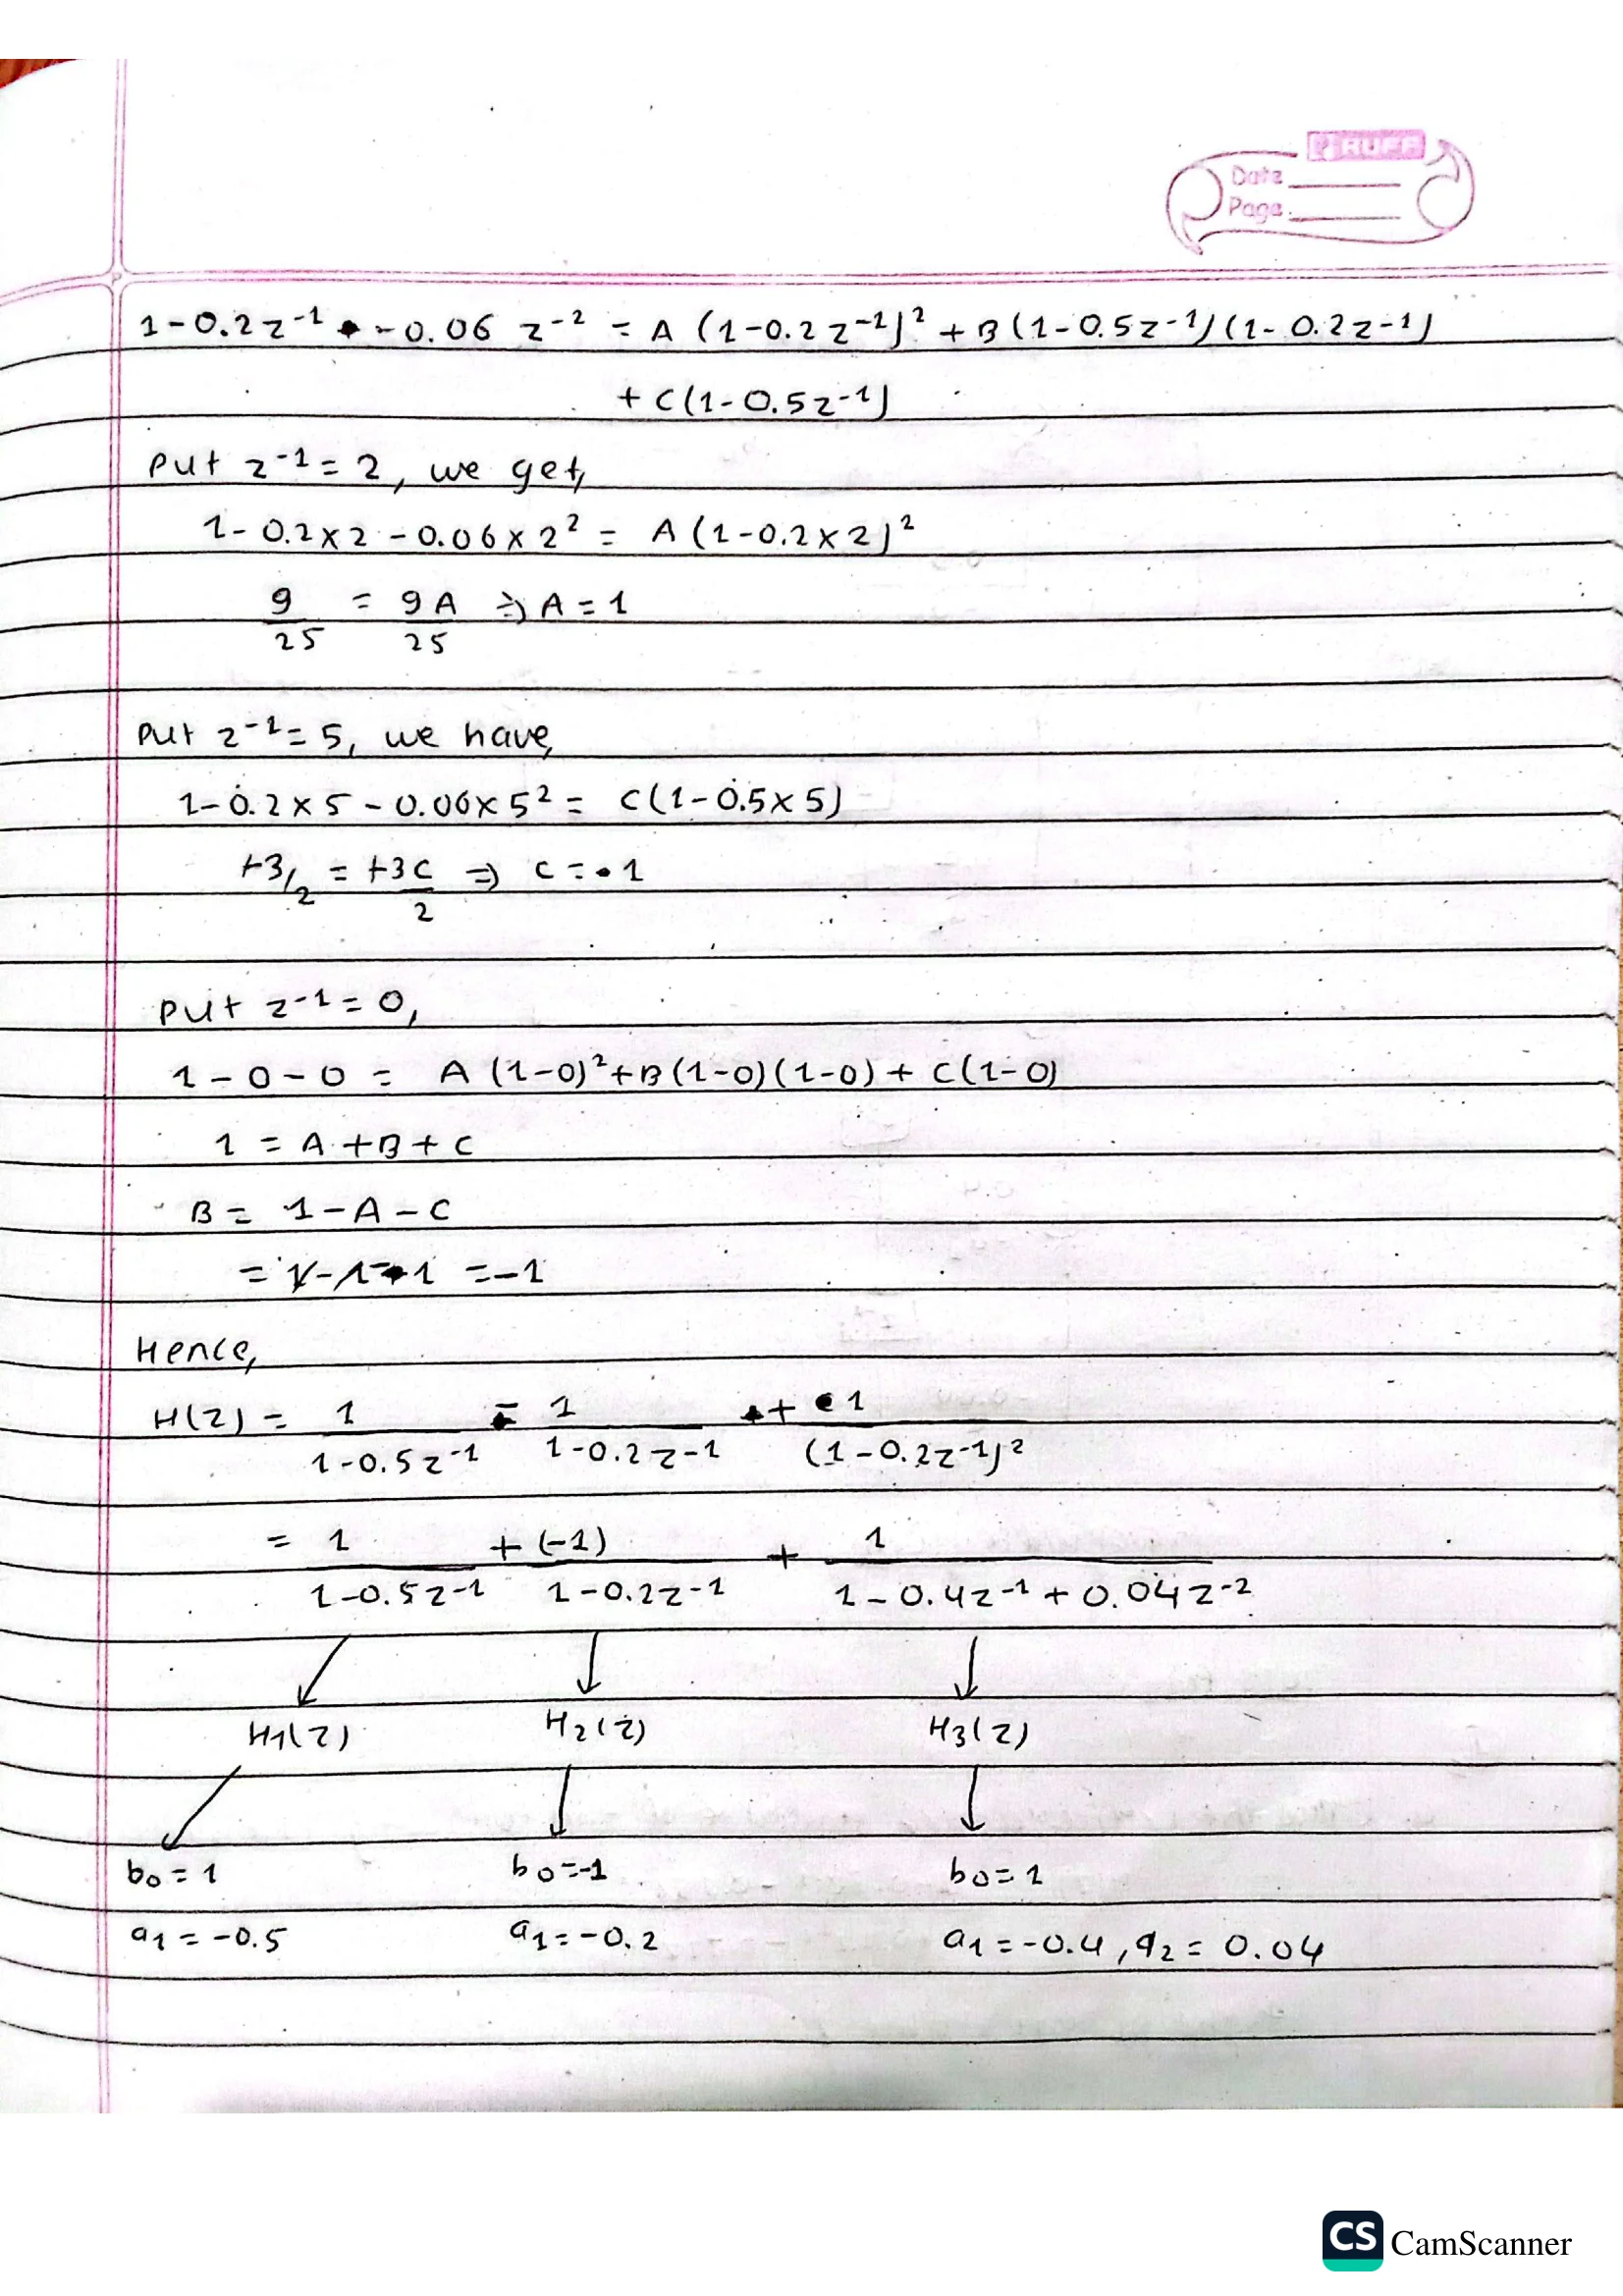 RUFA
Date
Page
1-0.2z⁻¹ -0.06 z⁻² = A (1-0.2z⁻¹)² + B(1-0.5z⁻¹)(1-0.2z⁻¹)
+ C(1-0.5z⁻¹)
Put z⁻¹ = 2, we get,
1-0.2×2 -0.06×2² = A(1-0.2×2)²
9/25 = 9A/25 ⇒ A = 1
Put z⁻¹ = 5, we have,
1-0.2×5 -0.06×5² = C(1-0.5×5)
+3/2 = +3C/2 ⇒ C = 1
Put z⁻¹ = 0,
1-0-0 = A(1-0)²+B(1-0)(1-0) + C(1-0)
1 = A+B+C
B = 1-A-C
= 1-1-1 = -1
Hence,
H(z) = 1/(1-0.5z⁻¹) - 1/(1-0.2z⁻¹) + 1/(1-0.2z⁻¹)²
= 1/(1-0.5z⁻¹) + (-1)/(1-0.2z⁻¹) + 1/(1-0.4z⁻¹+0.04z⁻²)
H1(z) H2(z) H3(z)
b0 = 1 b0=-1 b0=1
a1 = -0.5 a1=-0.2 a1=-0.4, a2=0.04
CS CamScanner